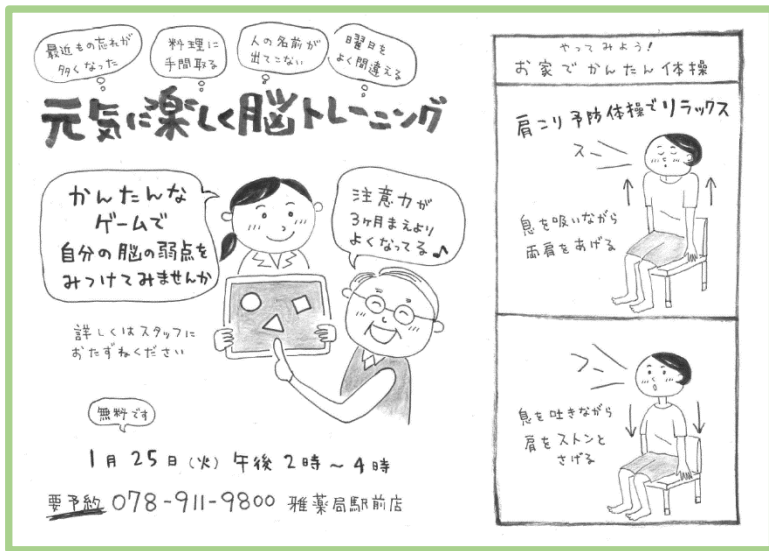 最近もの忘れが
多くなった
料理に
手間取る
人の名前が
出てこない
曜日を
よく間違える
元気に楽しく脳トレーニング
かんたんな
ゲームで
自分の脳の弱点を
みつけてみませんか
注意力が
3ヶ月まえより
よくなってる♪
詳しくはスタッフに
おたずねください
無料です
1月25日(火)午後2時～4時
要予約 078-911-9800 雅薬局駅前店
やってみよう!
お家でかんたん体操
肩こり予防体操でリラックス
スー
息を吸いながら
両肩をあげる
フー
息を吐きながら
肩をストンと
さげる